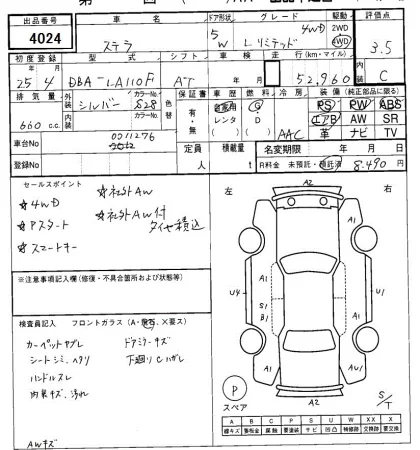 出品番号 車名 ドア形状 グレード 駆動 評価点
4024 ステラ 5 W Lリミテッド 4WD 2WD 4WD 3.5
初度登録 型式 シフト 車検 走行(km・マイル) 内装
25年4月 DBA-LA110F AT 年 月 52,960 C
排気量 外装 シルバー カラーNo. S28 色替 保証書 車歴 燃料 冷房 装備(純正部品に限る)
660cc. 内装 カラーNo. 有・無 自家用 レンタ ( ) G D ( ) AAC PS PW ABS
エアB AW SR
革 ナビ TV
車台No 0011276
登録No 定員 人 積載量 t 名変期限 年 月 日
R料金 未預託・預託済 8,490円
セールスポイント
☆4WD ☆社外AW
☆Pスタート ☆社外AW付
タイヤ積込
☆スマートキー
※注意事項記入欄(修復・不具合箇所および状態等)
検査員記入 フロントガラス(A・飛石・X要ス)
カーペットヤブレ ドアミラーキズ
シートシミ、ヘタリ 下廻りCハガレ
ハンドルスレ
内装キズ、汚れ
AWキズ
左 右
A2
A1 A1
U4 S1 U1
B1
A1 AU1
A2
P
スペア
S/T
A B C P S U W X XX
線キズ 鈑金傷 腐食 要塗装 サビ 凹凸 補修跡 要交換 交換済